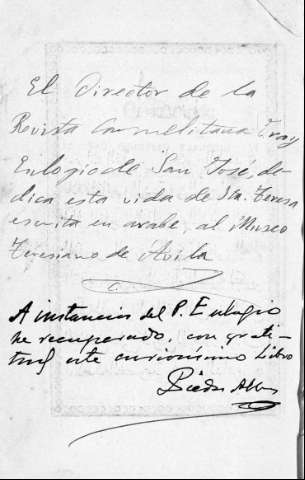 El Director de la
Revista Carmelitana Fray
Eulogio de San José, de-
dica esta vida de Sta. Teresa
escrita en arabe, al Museo
Teresiano de Ávila
A instancias del P. Eulogio
he recuperado, con grati-
tud este curiosísimo Libro
Piedras Albas